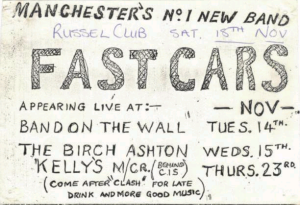 MANCHESTER'S No1 NEW BAND
RUSSEL CLUB SAT. 18TH NOV
FAST CARS
APPEARING LIVE AT:- — NOV —
BAND ON THE WALL TUES. 14TH.
THE BIRCH ASHTON WEDS. 15TH.
"KELLY'S" M/CR. (BEHIND C.I.S) THURS. 23RD.
(COME AFTER "CLASH" FOR LATE
DRINK AND MORE GOOD MUSIC)